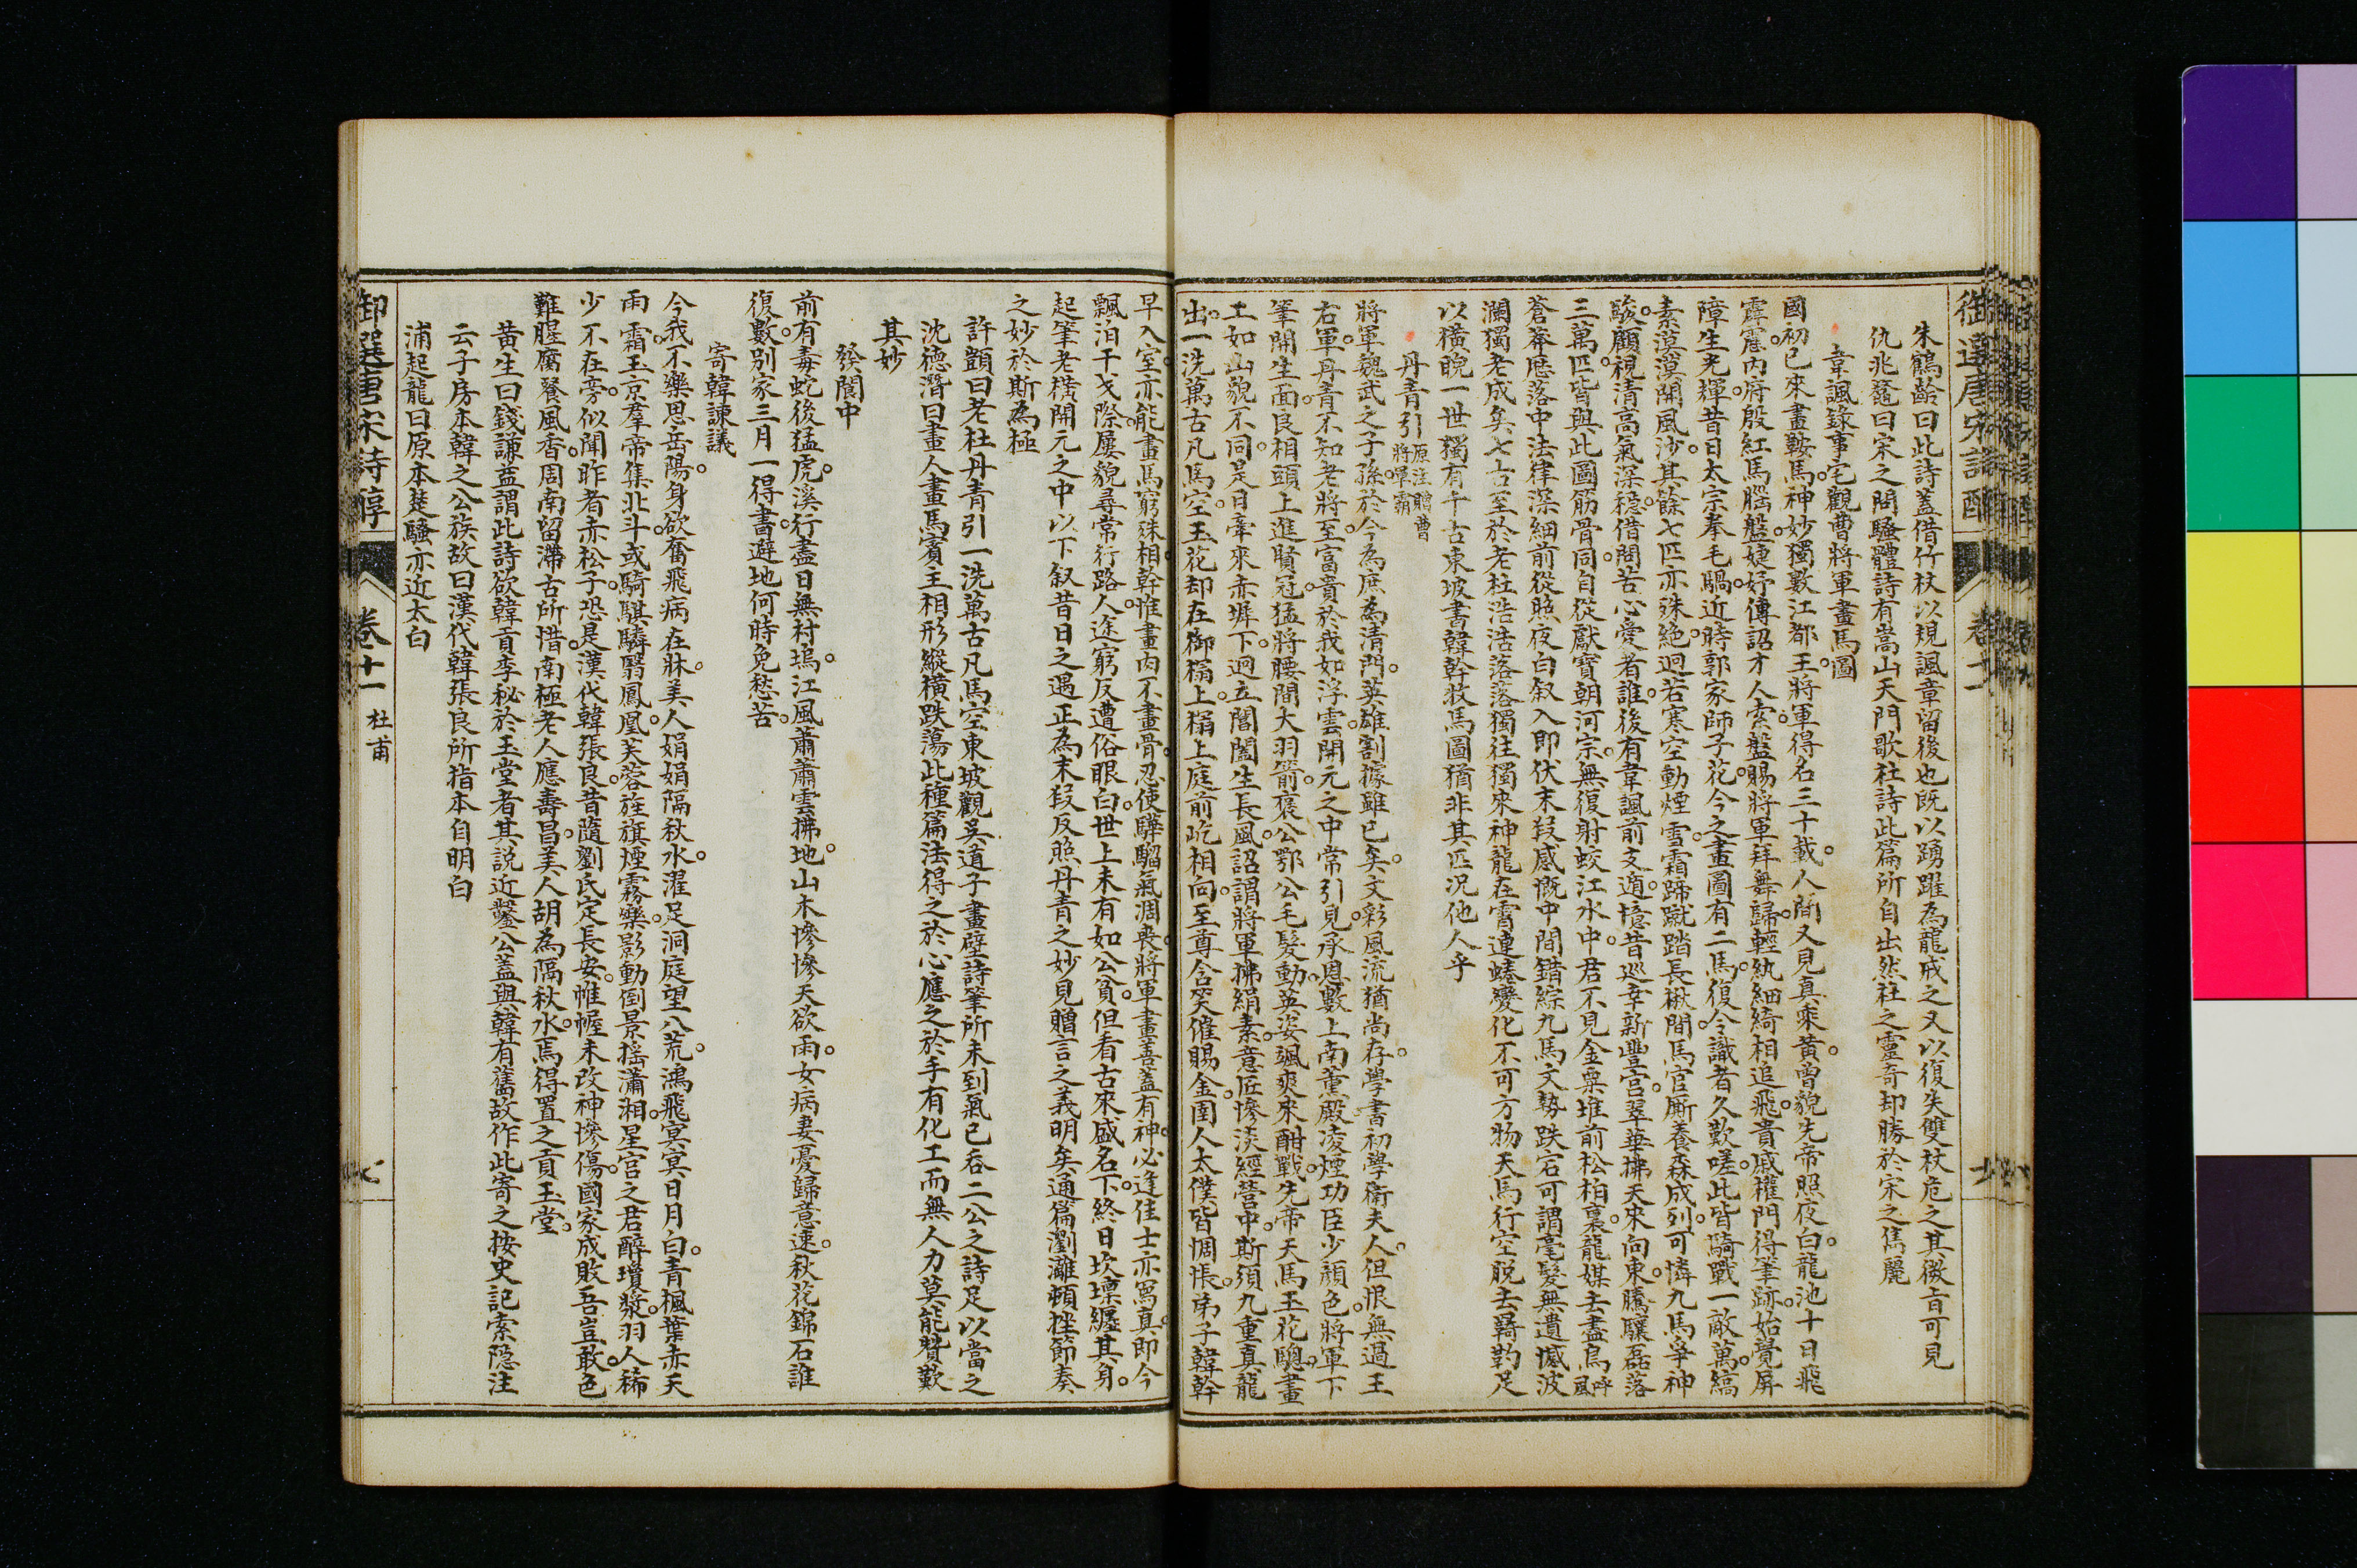 朱鶴齡曰此詩蓋借竹杖以規諷章留後也既以踴躍為龍戒之又以復失雙杖危之其微旨可見
仇兆鰲曰宋之問騷體詩有嵩山天門歌杜詩此篇所自出然杜之靈奇却勝於宋之雋麗
韋諷錄事宅觀曹將軍畫馬圖
國初已來畫鞍馬神妙獨數江都王將軍得名三十載人間又見真乘黃曾貌先帝照夜白龍池十日飛
霹靂內府殷紅馬腦盤婕妤傳詔才人索盤賜將軍拜舞歸輕紈細綺相追飛貴戚權門得筆跡始覺屏
障生光輝昔日太宗拳毛騧近時郭家師子花今之畫圖有二馬復令識者久歎嗟此皆騎戰一敵萬縞
素漠漠開風沙其餘七匹亦殊絕迥若寒空動煙雪霜蹄蹴踏長楸間馬官廝養森成列可憐九馬爭神
駿顧視清高氣深穩借問苦心愛者誰後有韋諷前支遁憶昔巡幸新豐宮翠華拂天來向東騰驤磊落
三萬匹皆與此圖筋骨同自從獻寶朝河宗無復射蛟江水中君不見金粟堆前松柏裏龍媒去盡鳥呼風
蒼莽歷落中法律深細前從照夜白敘入即伏末段感慨中間錯綜九馬文勢跌宕可謂毫髮無遺憾波
瀾獨老成矣七古至於老杜浩浩落落獨往獨來神龍在霄連蜷變化不可方物天馬行空脫去羈靮足
以橫睨一世獨有千古東坡書韓幹牧馬圖猶非其匹況他人乎
丹青引原注贈曹將軍霸
將軍魏武之子孫於今為庶為清門英雄割據雖已矣文彩風流猶尚存學書初學衛夫人但恨無過王
右軍丹青不知老將至富貴於我如浮雲開元之中常引見承恩數上南薰殿凌煙功臣少顏色將軍下
筆開生面良相頭上進賢冠猛將腰間大羽箭褒公鄂公毛髮動英姿颯爽來酣戰先帝天馬玉花驄畫
工如山貌不同是日牽來赤墀下迥立閶闔生長風詔謂將軍拂絹素意匠慘淡經營中斯須九重真龍
出一洗萬古凡馬空玉花却在御榻上榻上庭前屹相向至尊含笑催賜金圉人太僕皆惆悵弟子韓幹
早入室亦能畫馬窮殊相幹惟畫肉不畫骨忍使驊騮氣凋喪將軍畫善蓋有神必逢佳士亦寫真即今
飄泊干戈際屢貌尋常行路人途窮反遭俗眼白世上未有如公貧但看古來盛名下終日坎壈纏其身
起筆老橫開元之中以下叙昔日之遇正為末段反照丹青之妙見贈言之義明矣通篇瀏灕頓挫節奏
之妙於斯為極
許顗曰老杜丹青引一洗萬古凡馬空東坡觀吳道子畫壁詩筆所未到氣已吞二公之詩足以當之
沈德潛曰畫人畫馬賓主相形縱橫跌蕩此種篇法得之於心應之於手有化工而無人力莫能贊歎
其妙
發閬中
前有毒蛇後猛虎溪行盡日無村塢江風蕭蕭雲拂地山木慘慘天欲雨女病妻憂歸意速秋花錦石誰
復數別家三月一得書避地何時免愁苦
寄韓諫議
今我不樂思岳陽身欲奮飛病在牀美人娟娟隔秋水濯足洞庭望八荒鴻飛冥冥日月白青楓葉赤天
雨霜玉京羣帝集北斗或騎騏驎翳鳳凰芙蓉旌旗煙霧樂影動倒景搖瀟湘星宮之君醉瓊漿羽人稀
少不在旁似聞昨者赤松子恐是漢代韓張良昔隨劉氏定長安帷幄未改神慘傷國家成敗吾豈敢色
難腥腐餐風香周南留滯古所惜南極老人應壽昌美人胡為隔秋水焉得置之貢玉堂
黃生曰錢謙益謂此詩欲韓貢李祕於玉堂者其說近鑿公蓋與韓有舊故作此寄之按史記索隱注
云子房本韓之公族故曰漢代韓張良所指本自明白
浦起龍曰原本楚騷亦近太白
御選唐宋詩醇 卷十一 杜甫 七